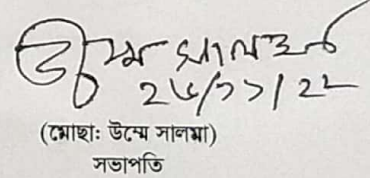 উম্মে সালমা
২৬/১১/২২
(মোছা: উম্মে সালমা)
সভাপতি